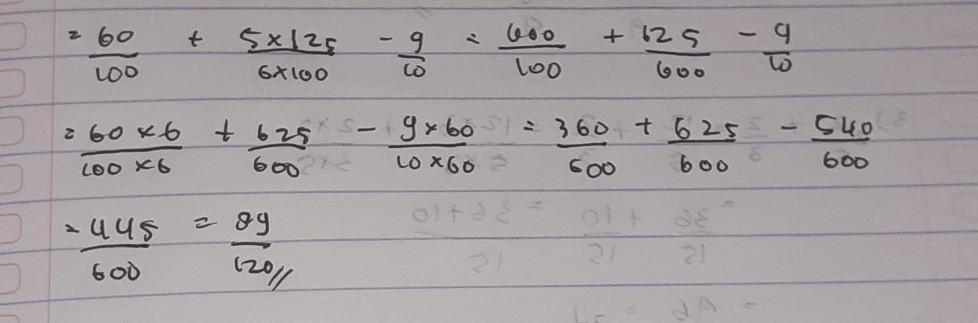 = 60/100 + 5×125/6×100 - 9/10 = 600/100 + 625/600 - 9/10
= 60×6/100×6 + 625/600 - 9×60/10×60 = 360/600 + 625/600 - 540/600
= 445/600 = 89/120//